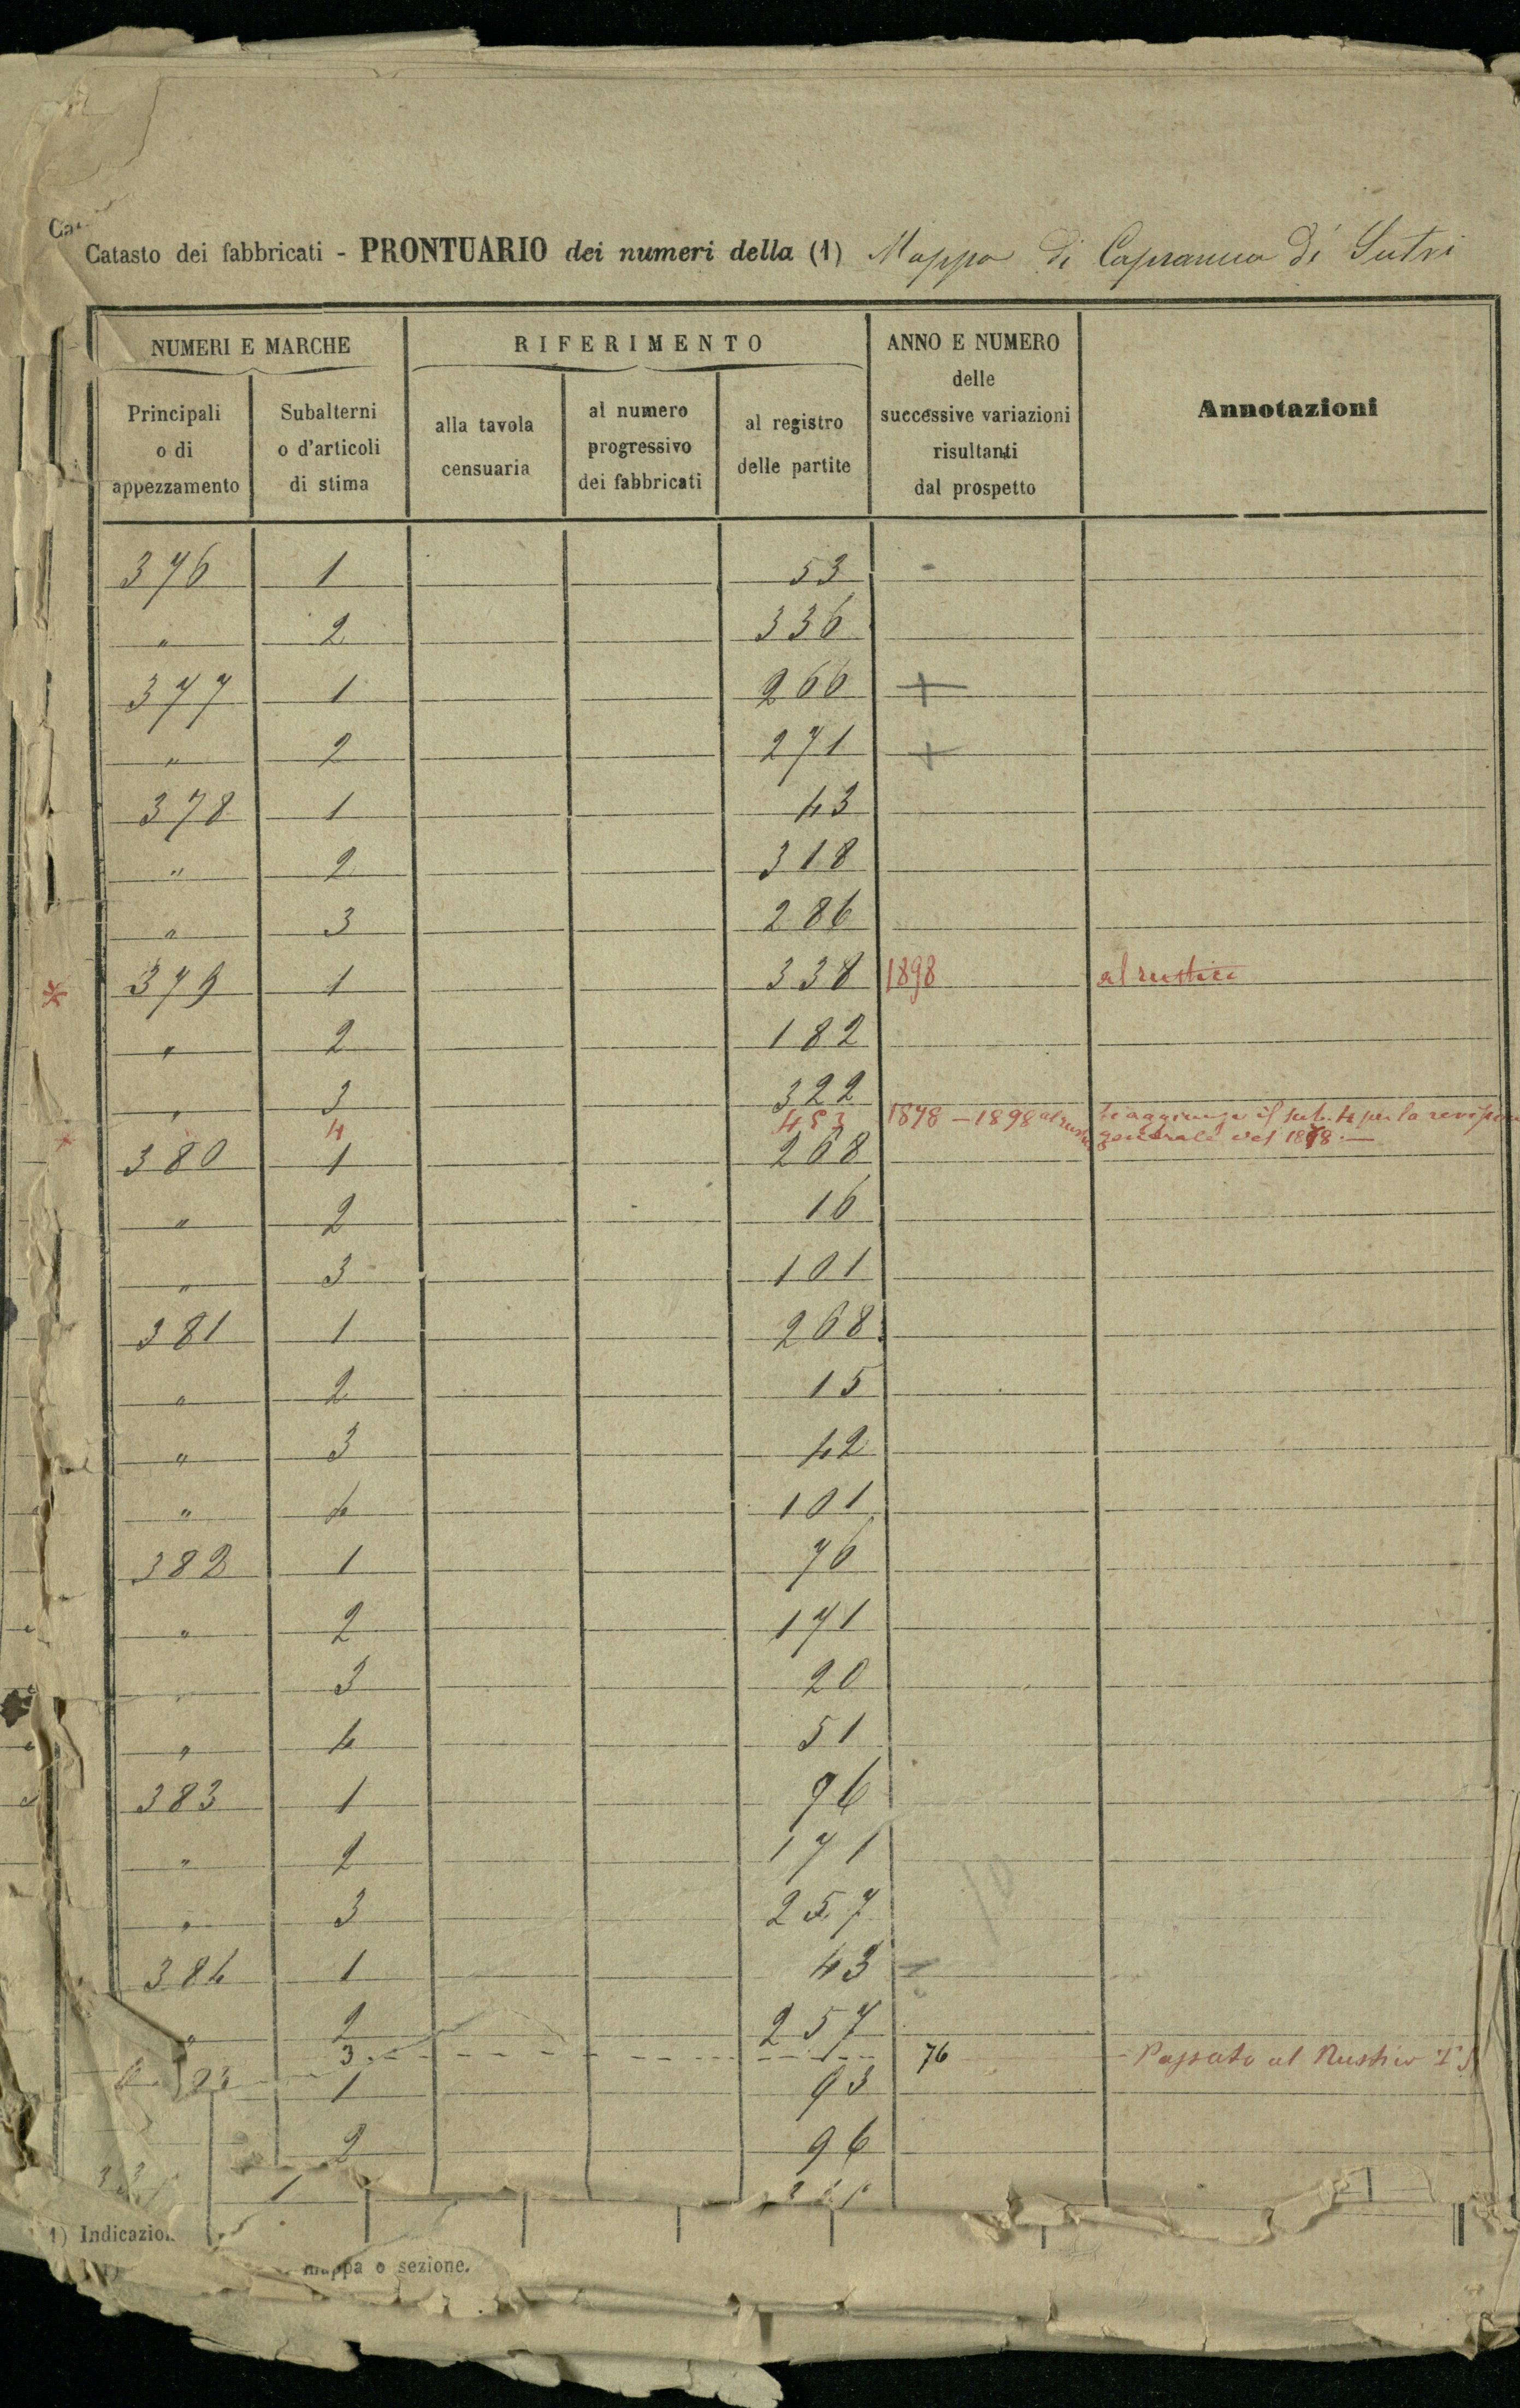 Catasto dei fabbricati - PRONTUARIO dei numeri della (1) Mappa di Capranica di Sutri
NUMERI E MARCHE
RIFERIMENTO
ANNO E NUMERO
delle
successive variazioni
risultanti
dal prospetto
Annotazioni
Principali
o di
appezzamento
Subalterni
o d'articoli
di stima
alla tavola
censuaria
al numero
progressivo
dei fabbricati
al registro
delle partite
376 1 53 -
" 2 336
377 1 266 +
" 2 271 +
378 1 43
" 2 318
" 3 286
* 379 1 338 1898 al rustico
" 2 182
" 3 322
4 453 1878 - 1898 al si aggiunge il sub. 4 per la
generale del 1878. —
380 1 268
" 2 16
" 3 101
381 1 268
" 2 15
" 3 42
" 4 101
382 1 76
" 2 171
" 3 20
" 4 51
383 1 96
" 2 171
" 3 257
384 1 43
" 2 257
3 76 Passato al Rustico
1 93
2 96
1
1) Indicazion
mappa o sezione.